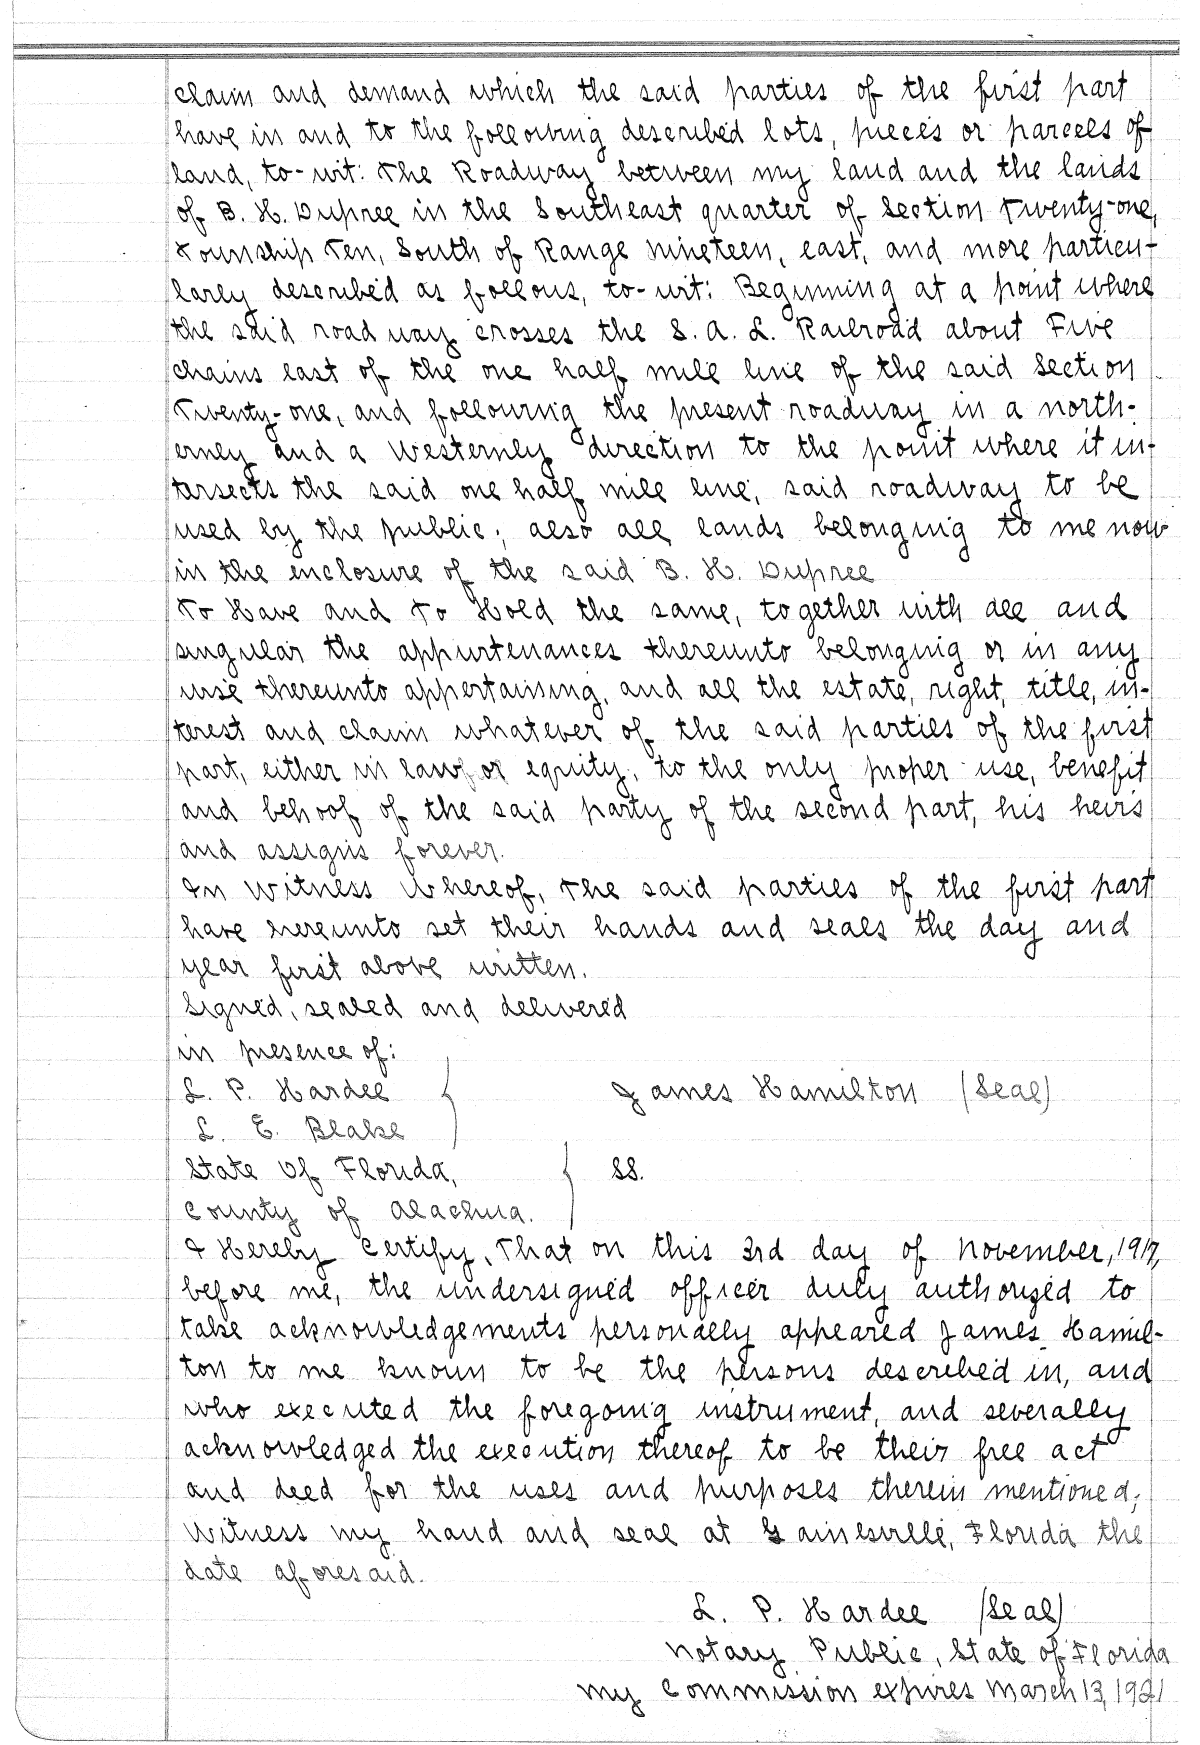 claim and demand which the said parties of the first part
have in and to the following described lots, pieces or parcels of
land, to-wit: The Roadway between my land and the lands
of B. H. Dupree in the Southeast quarter of Section Twenty-one,
Township Ten, South of Range nineteen, east, and more particu-
larly described as follows, to-wit: Beginning at a point where
the said road way crosses the S. A. L. Railroad about Five
chains east of the one half mile line of the said Section
Twenty-one, and following the present roadway in a north-
ernly and a Westernly direction to the point where it in-
tersects the said one half mile line, said roadway to be
used by the public; also all lands belonging to me now
in the enclosure of the said B. H. Dupree
To Have and To Hold the same, together with all and
singular the appurtenances thereunto belonging or in any
wise thereunto appertaining, and all the estate, right, title, in-
terest and claim whatever of the said parties of the first
part, either in law or equity, to the only proper use, benefit
and behoof of the said party of the second part, his heirs
and assigns forever.
In Witness Whereof, The said parties of the first part
have hereunto set their hands and seals the day and
year first above written.
Signed, sealed and delivered
in presence of:
L. P. Hardee James Hamilton (Seal)
L. E. Blake
State Of Florida, SS.
County of Alachua.
I Hereby Certify, That on this 3rd day of November, 1917,
before me, the undersigned officer duly authorized to
take acknowledgements personally appeared James Hamil-
ton to me known to be the persons described in, and
who executed the foregoing instrument, and severally
acknowledged the execution thereof to be their free act
and deed for the uses and purposes therein mentioned;
Witness my hand and seal at Gainesville, Florida the
date aforesaid.
L. P. Hardee (Seal)
Notary Public, State of Florida
My Commission expires March 13, 1921